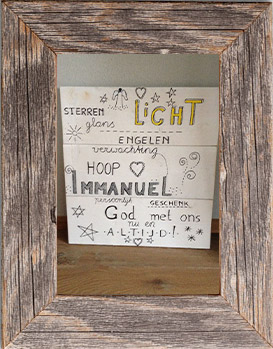 LICHT
STERREN
glans
ENGELEN
verwachting
HOOP
IMMANUEL
persoonlijk GESCHENK
God met ons
nu en
ALTIJD!